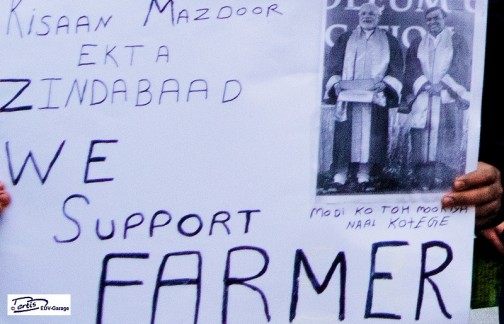 KISAAN MAZDOOR
EKTA
ZINDABAAD
WE
SUPPORT
FARMER
MODI KO TOH
NAAL KOTEGE
EDV-Garage